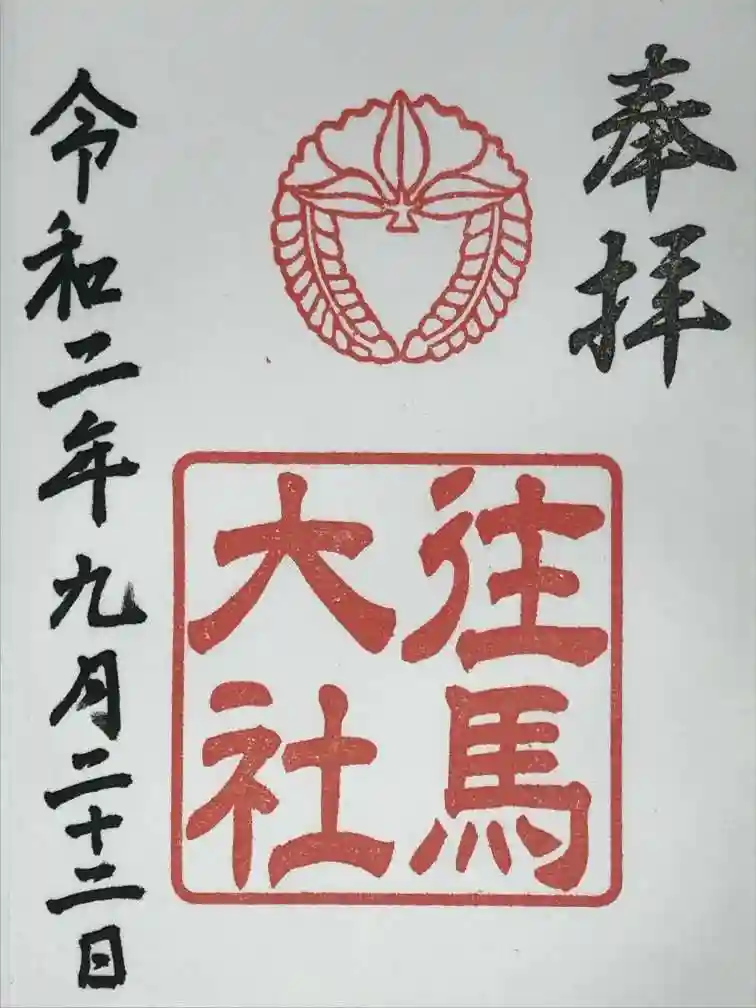 奉拝
往馬
大社
令和二年九月二十二日